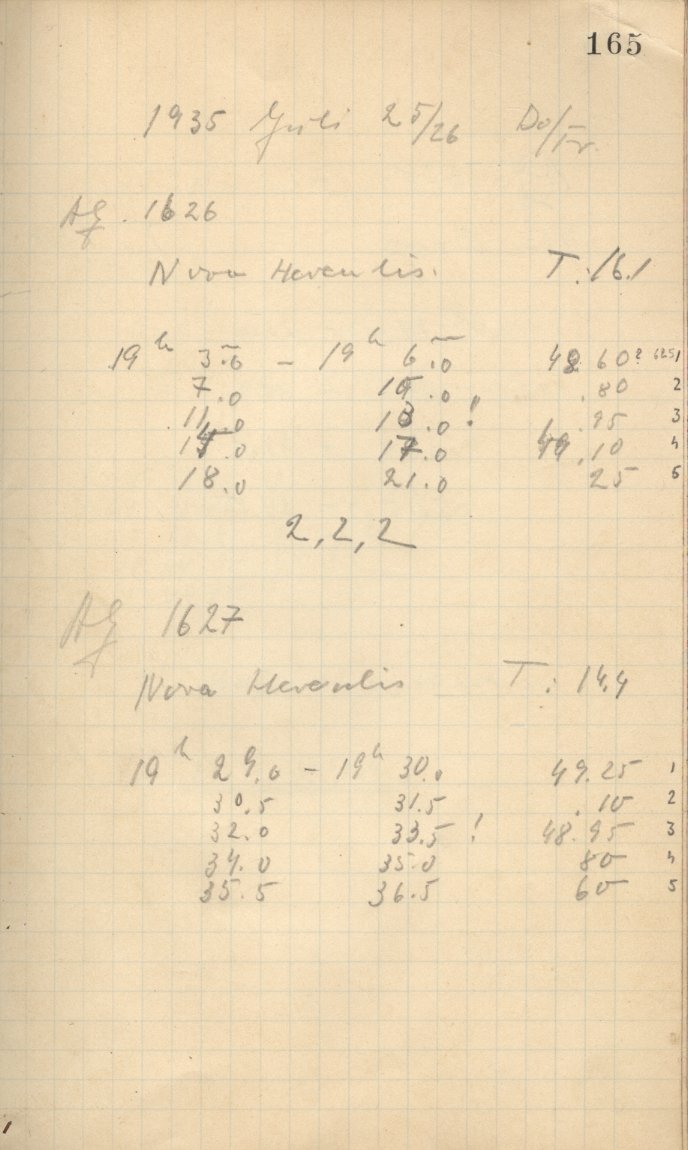 165
1935 Juli 25/26 Do/Fr.
AG. 1626
Nova Herculis. T: 16.1
19h 3m.0 – 19h 6m.0 48.60? 1
7.0 10.0 .80 2
11.0 13.0 ! .95 3
14.0 17.0 49.10 4
18.0 21.0 25 5
2, 2, 2
AG 1627
Nova Herculis T: 14.4
19h 29.0 – 19h 30.0 49.25 1
30.5 31.5 .10 2
32.0 33.5 ! 48.95 3
34.0 35.0 80 4
35.5 36.5 60 5